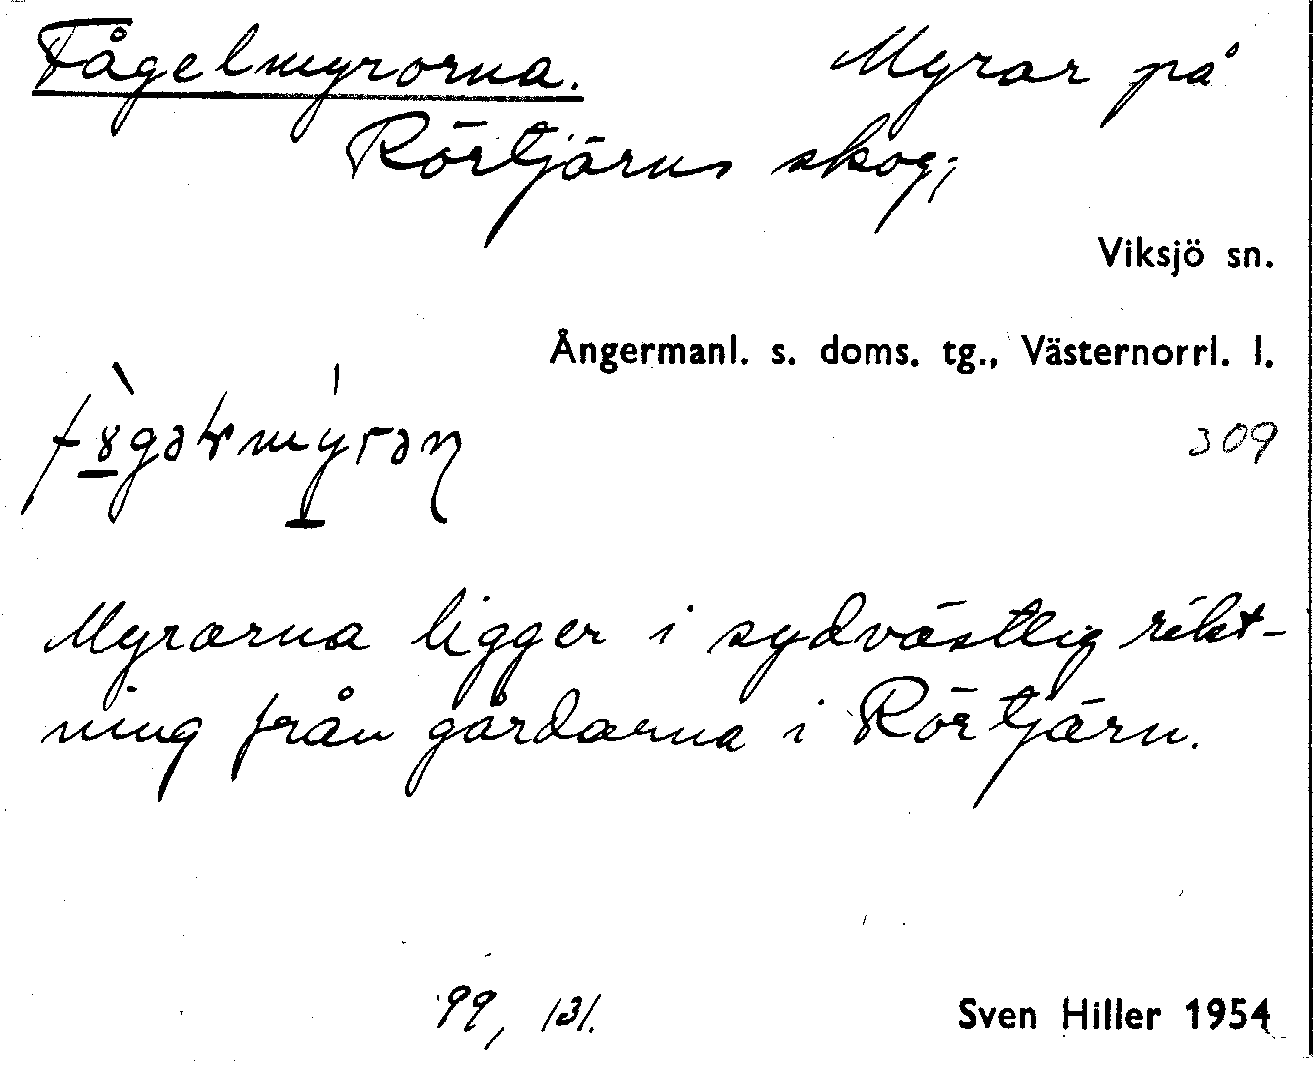 Fågelmyrorna. Myrar på
Rörtjärns skog;
Viksjö sn.
Ångermanl. s. doms. tg., Västernorrl. l.
309
Myrarna ligger i sydvästlig rikt-
ning från gårdarna i Rörtjärn.
99, 131.
Sven Hiller 1954